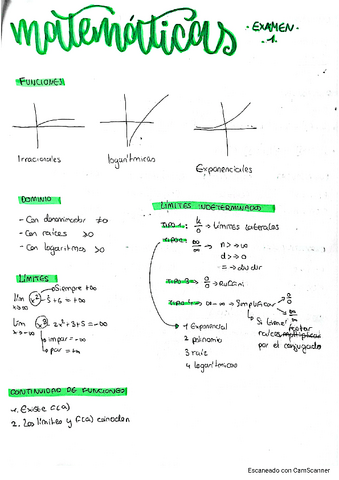 matemáticas
· EXAMEN ·
· 1 ·
FUNCIONES
Irracionales
logarítmicas
Exponenciales
DOMINIO
- Con denominador ≠0
- Con raíces >0
- Con logaritmos >0
LÍMITES
Siempre +∞
lím x² - 3 + 6 = +∞
x→-∞
lím x³ - 2x² + 3 + 5 = -∞
x→-∞
impar = -∞
par = +∞
LÍMITES INDETERMINADOS
TIPO 1: k/0 → Límites laterales
TIPO 2: ∞/∞ → n> → ∞
d> → 0
= → dividir
TIPO 3: 0/0 → RUFFINI
TIPO 4: ∞-∞ → Simplificar → 0/0
∞/∞
Si tiene
raíces multiplicar
por el conjugado
1 Exponencial
2 polinomio
3 raíz
4 logarítmicos
CONTINUIDAD DE FUNCIONES
1. Existe f(a)
2. Los límites y f(a) coinciden
Escaneado con CamScanner